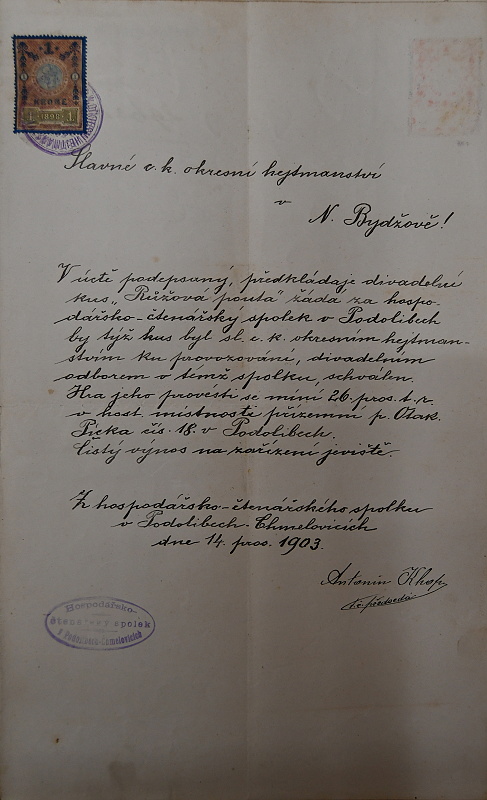 1
KRONE
1 1898 1
Slavné c. k. okresní hejtmanství
v
N. Bydžově!
V úctě podepsaný, předkládaje divadelní
kus „Růžová pouta" žádá za hospo-
dářsko-čtenářský spolek v Podolibech
by týž kus byl sl. c. k. okresním hejtman-
stvím ku provozování, divadelním
odborem v témž spolku, schválen.
Hra jeho provésti se míní 26. pros. t. r.
v host. místnosti přízemní p. Otak.
Picka čís. 18. v Podolibech.
Čistý výnos na zařízení jeviště.
Z hospodářsko-čtenářského spolku
v Podolibech-Chmelovicích
dne 14. pros. 1903.
Antonín Khop
t. č. předseda
Hospodářsko-
čtenářský spolek
v Podolibech-Chmelovicích